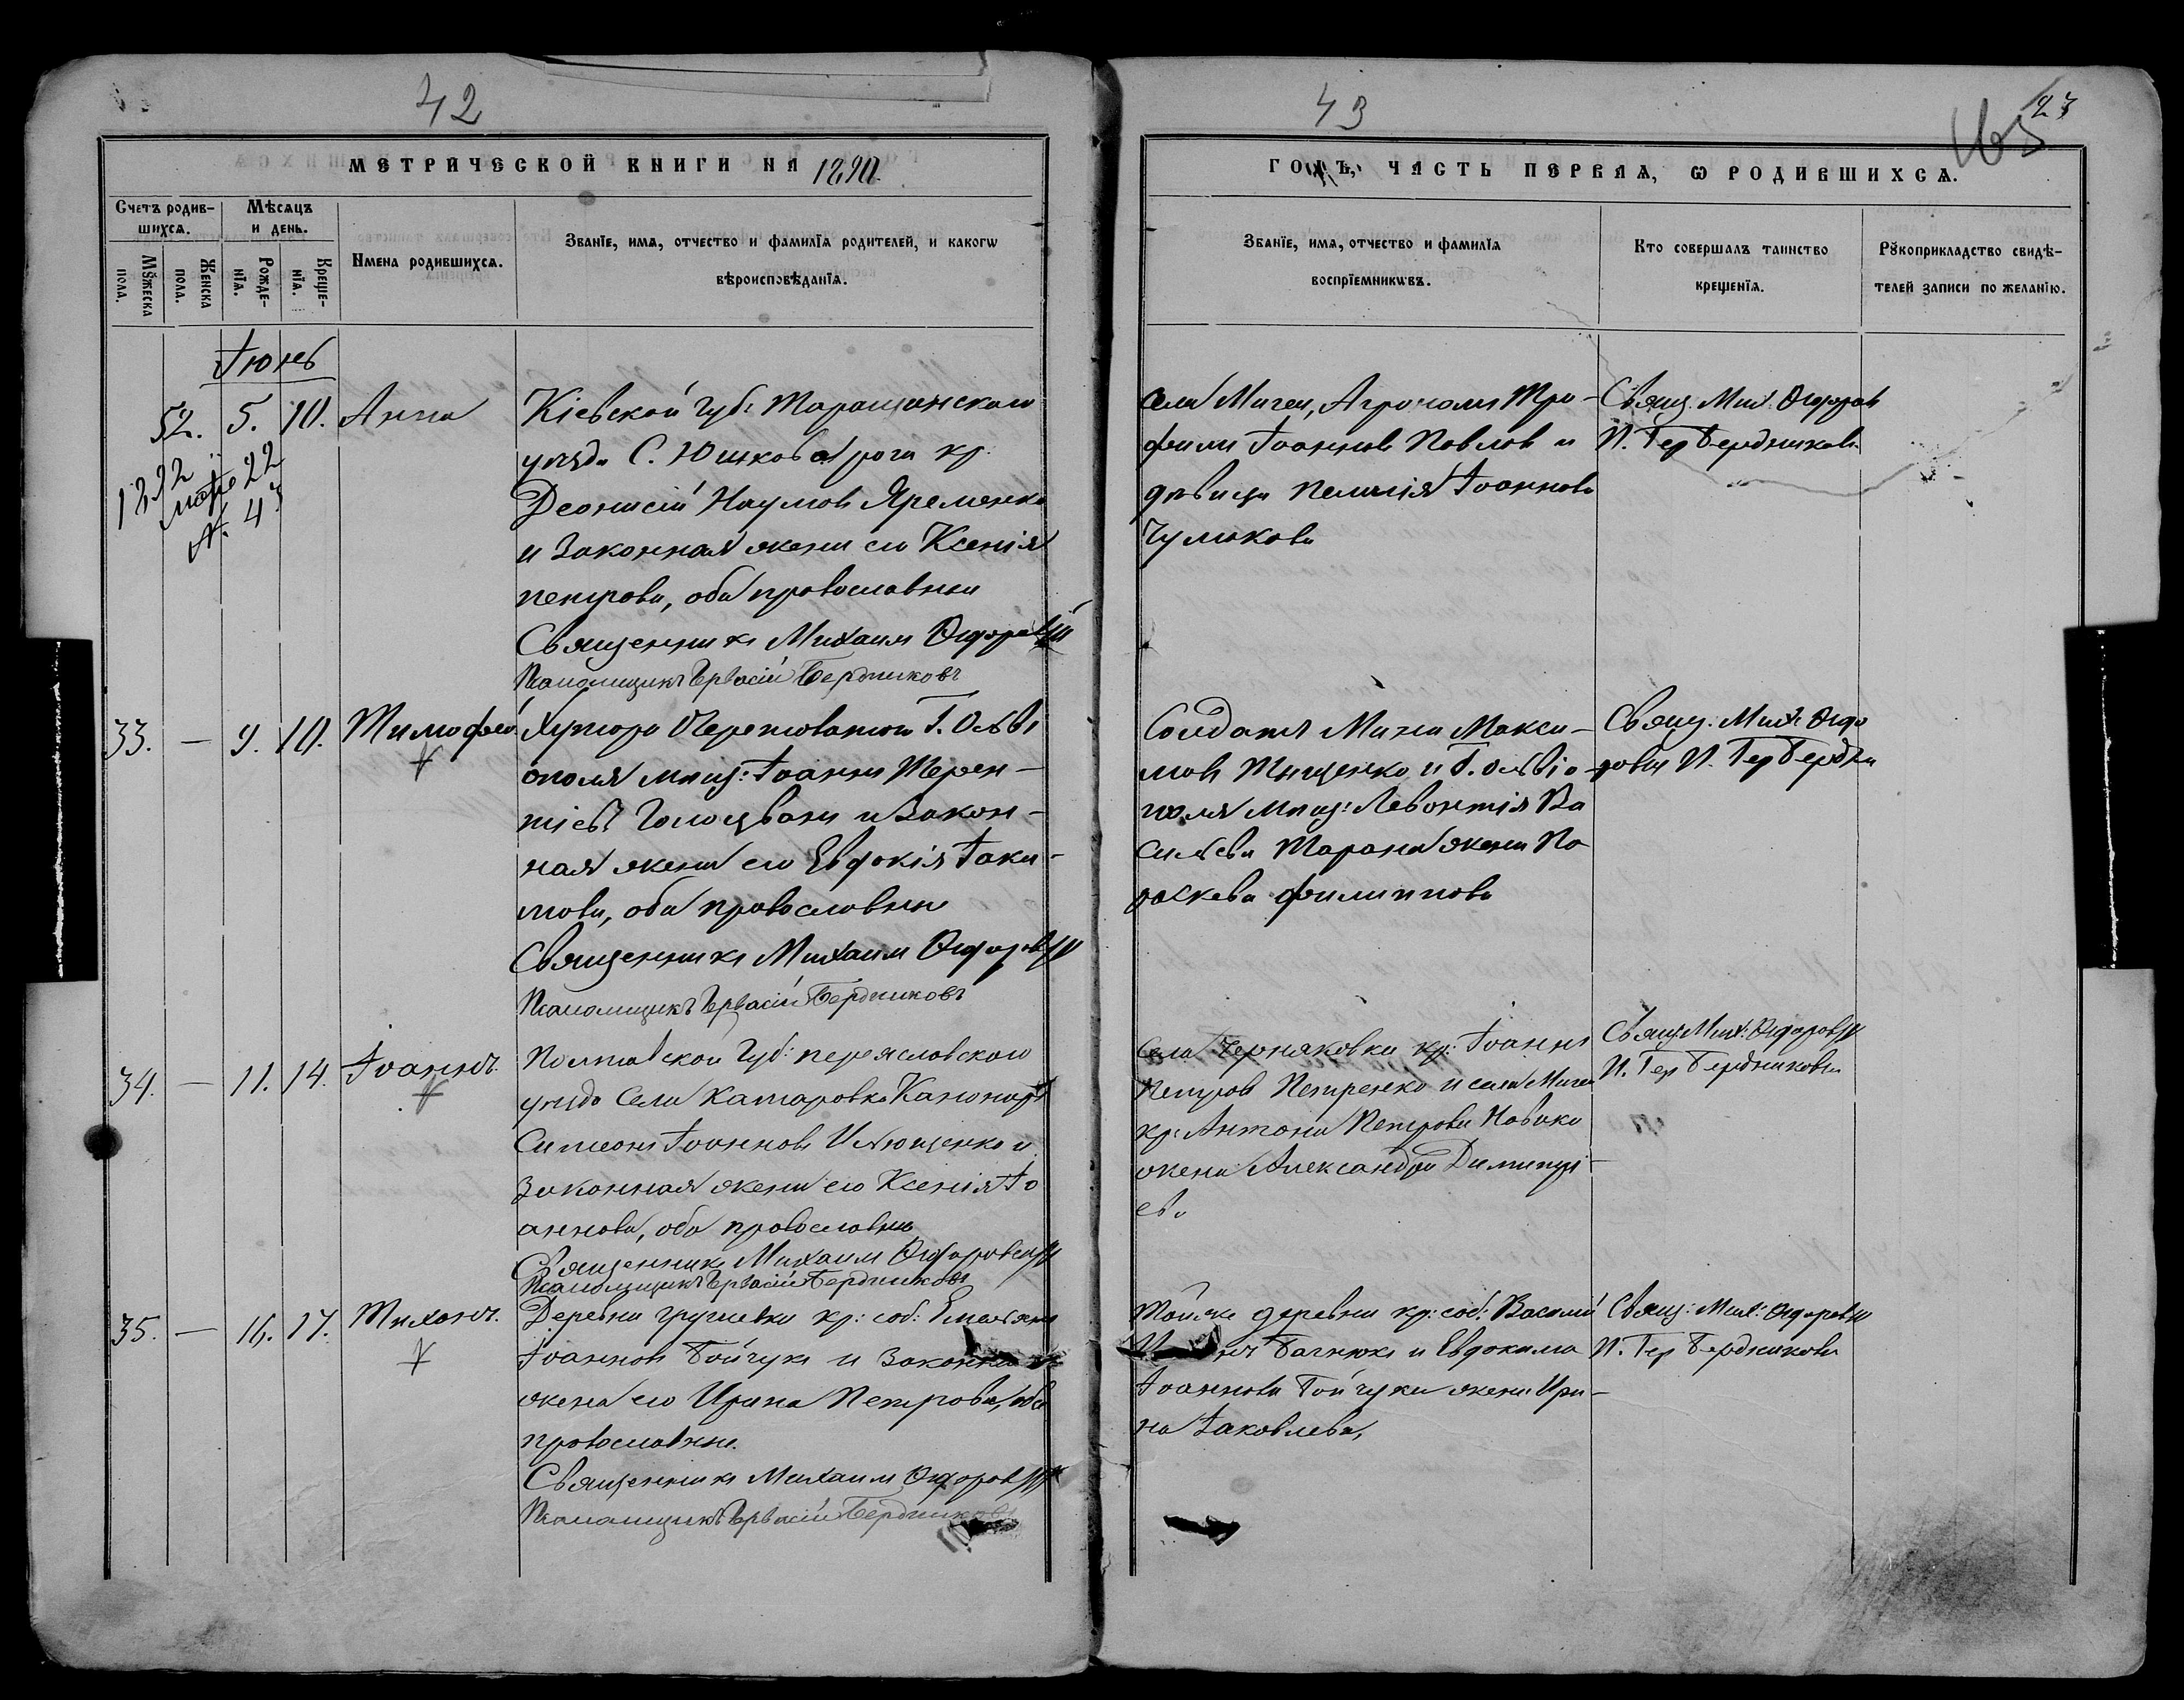 42
МЕТРИЧЕСКОЙ КНИГИ НА 1890
Счетъ родив-
шихся.
Мѣсяцъ
и день.
Мꙋжеска
пола.
Женска
пола.
Рожде-
нїя.
Креще-
нїя.
Имена родившихся.
Званїе, имя, отчество и фамилїя родителей, и какогѡ
вѣроисповѣданїя.
Іюнь
52. 5. 10. Анна
1892
22
№ 43
Кіевской губ: Таращанскаго
уѣзда С. Юшкова рога кр.
Деонисій Наумовъ Яременко
и законная жена его Ксенія
Петрова, оба православныи
Священникъ Михаилъ
Псаломщикъ Герасій Бердниковъ
33. — 9. 10. Тимофей
Хутора Очеретоватого Г. Ольві
ополя мѣщ: Іоаннъ Терен-
тіевъ Голоцванъ и закон-
ная жена его Евдокія Іаки-
мова, оба православныи
Священникъ Михаилъ
Псаломщикъ Герасій Бердниковъ
34. — 11. 14. Іоаннъ.
Полтавской губ: переяславского
уѣзда села Канониръ
Симеонъ Іоанновъ Илющенко и
законная жена его Ксенія Іо
аннова, оба православныи
Священникъ Михаилъ
Псаломщикъ Герасій Бердниковъ
35. — 16. 17. Тихонъ.
Деревни Грушевки кр: соб: Емельянъ
Іоанновъ Бойчукъ и законная
жена его Ирина Петрова, оба
православныи.
Священникъ Михаилъ
Псаломщикъ Герасій Бердниковъ
43
165
23
ГОДЪ, ЧАСТЬ ПЕРВАЯ, Ѡ РОДИВШИХСЯ.
Званїе, имя, отчество и фамилїя
воспрїемникѡвъ.
Кто совершалъ таинство
крещенїя.
Рꙋкоприкладство свидѣ-
телей записи по желанїю.
села Мигеи, Агрономъ Тро-
фимъ Іоанновъ Павловъ и
дѣвица Пелагія Іоаннова
Чумакова
Свящ. Мих.
П. Гер Бердниковъ
Солдатъ Макси-
мовъ Тыщенко и Г. Ольвіо-
поля мѣщ: Левонтія Ва
сильева Тарана жена Па
раскева Филиппова
Свящ. Мих.
П. Гер Бердни
Села Черняховки кр: Іоаннъ
Петровъ Петренко и села Мигеи
кр: Антона Петрова Новака
жена Александра Димитрі-
ева
Свящ. Мих:
П. Гер Бердниковъ
Той же деревни кр: соб: Василій
Багнюкъ и Евдокима
Іоаннова Бойчука жена Ири-
на Іаковлева,
Свящ: Мих:
П. Гер Бердниковъ